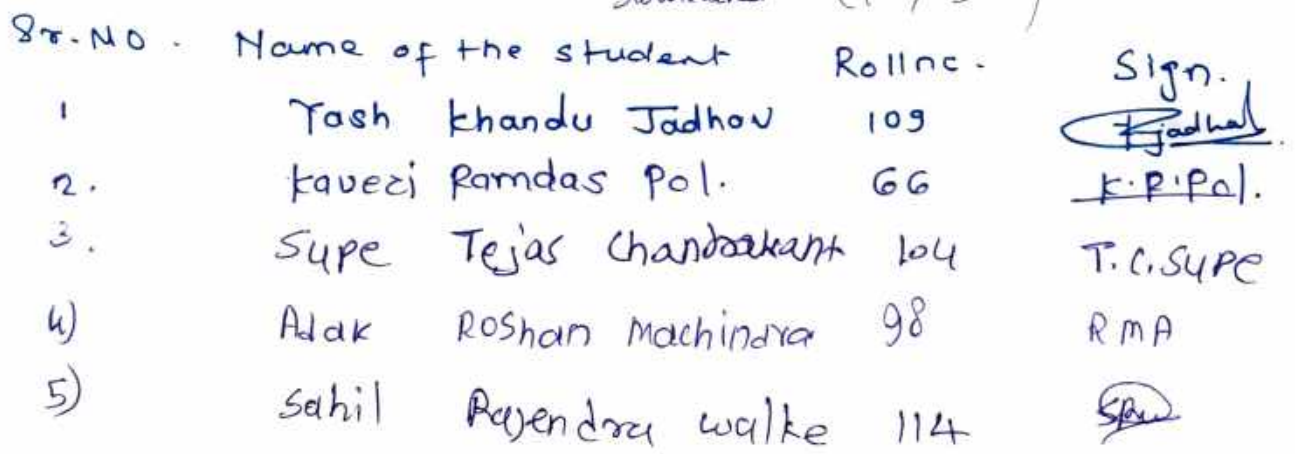 Sr.No. Name of the student Rollno. Sign.
1 Yash khandu Jadhav 109 Kjadhav
2. kaveri Ramdas Pol. 66 K.R.Pol.
3. Supe Tejas Chandrakant 104 T.C.SUPE
4) Adak Roshan Machindra 98 RMA
5) Sahil Rajendra walke 114